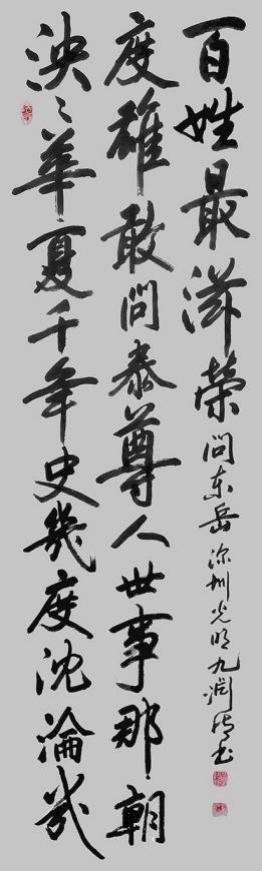 泱〻華夏千年史幾度沈淪幾
度雄敢問泰尊人世事那朝
百姓最滋榮 問东岳 深圳光明九澗 书